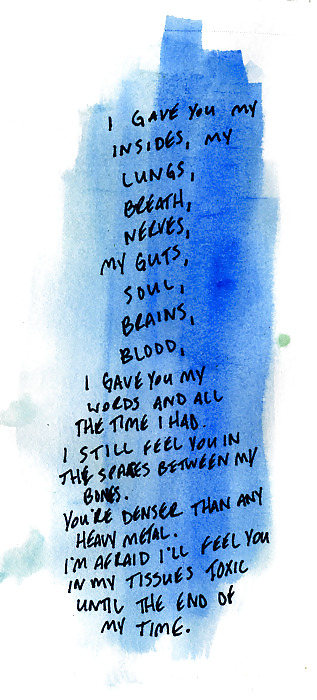 I GAVE YOU MY
INSIDES, MY
LUNGS,
BREATH,
NERVES,
MY GUTS,
SOUL,
BRAINS,
BLOOD,
I GAVE YOU MY
WORDS AND ALL
THE TIME I HAD.
I STILL FEEL YOU IN
THE SPACES BETWEEN MY
BONES.
YOU'RE DENSER THAN ANY
HEAVY METAL.
I'M AFRAID I'LL FEEL YOU
IN MY TISSUES TOXIC
UNTIL THE END OF
MY TIME.